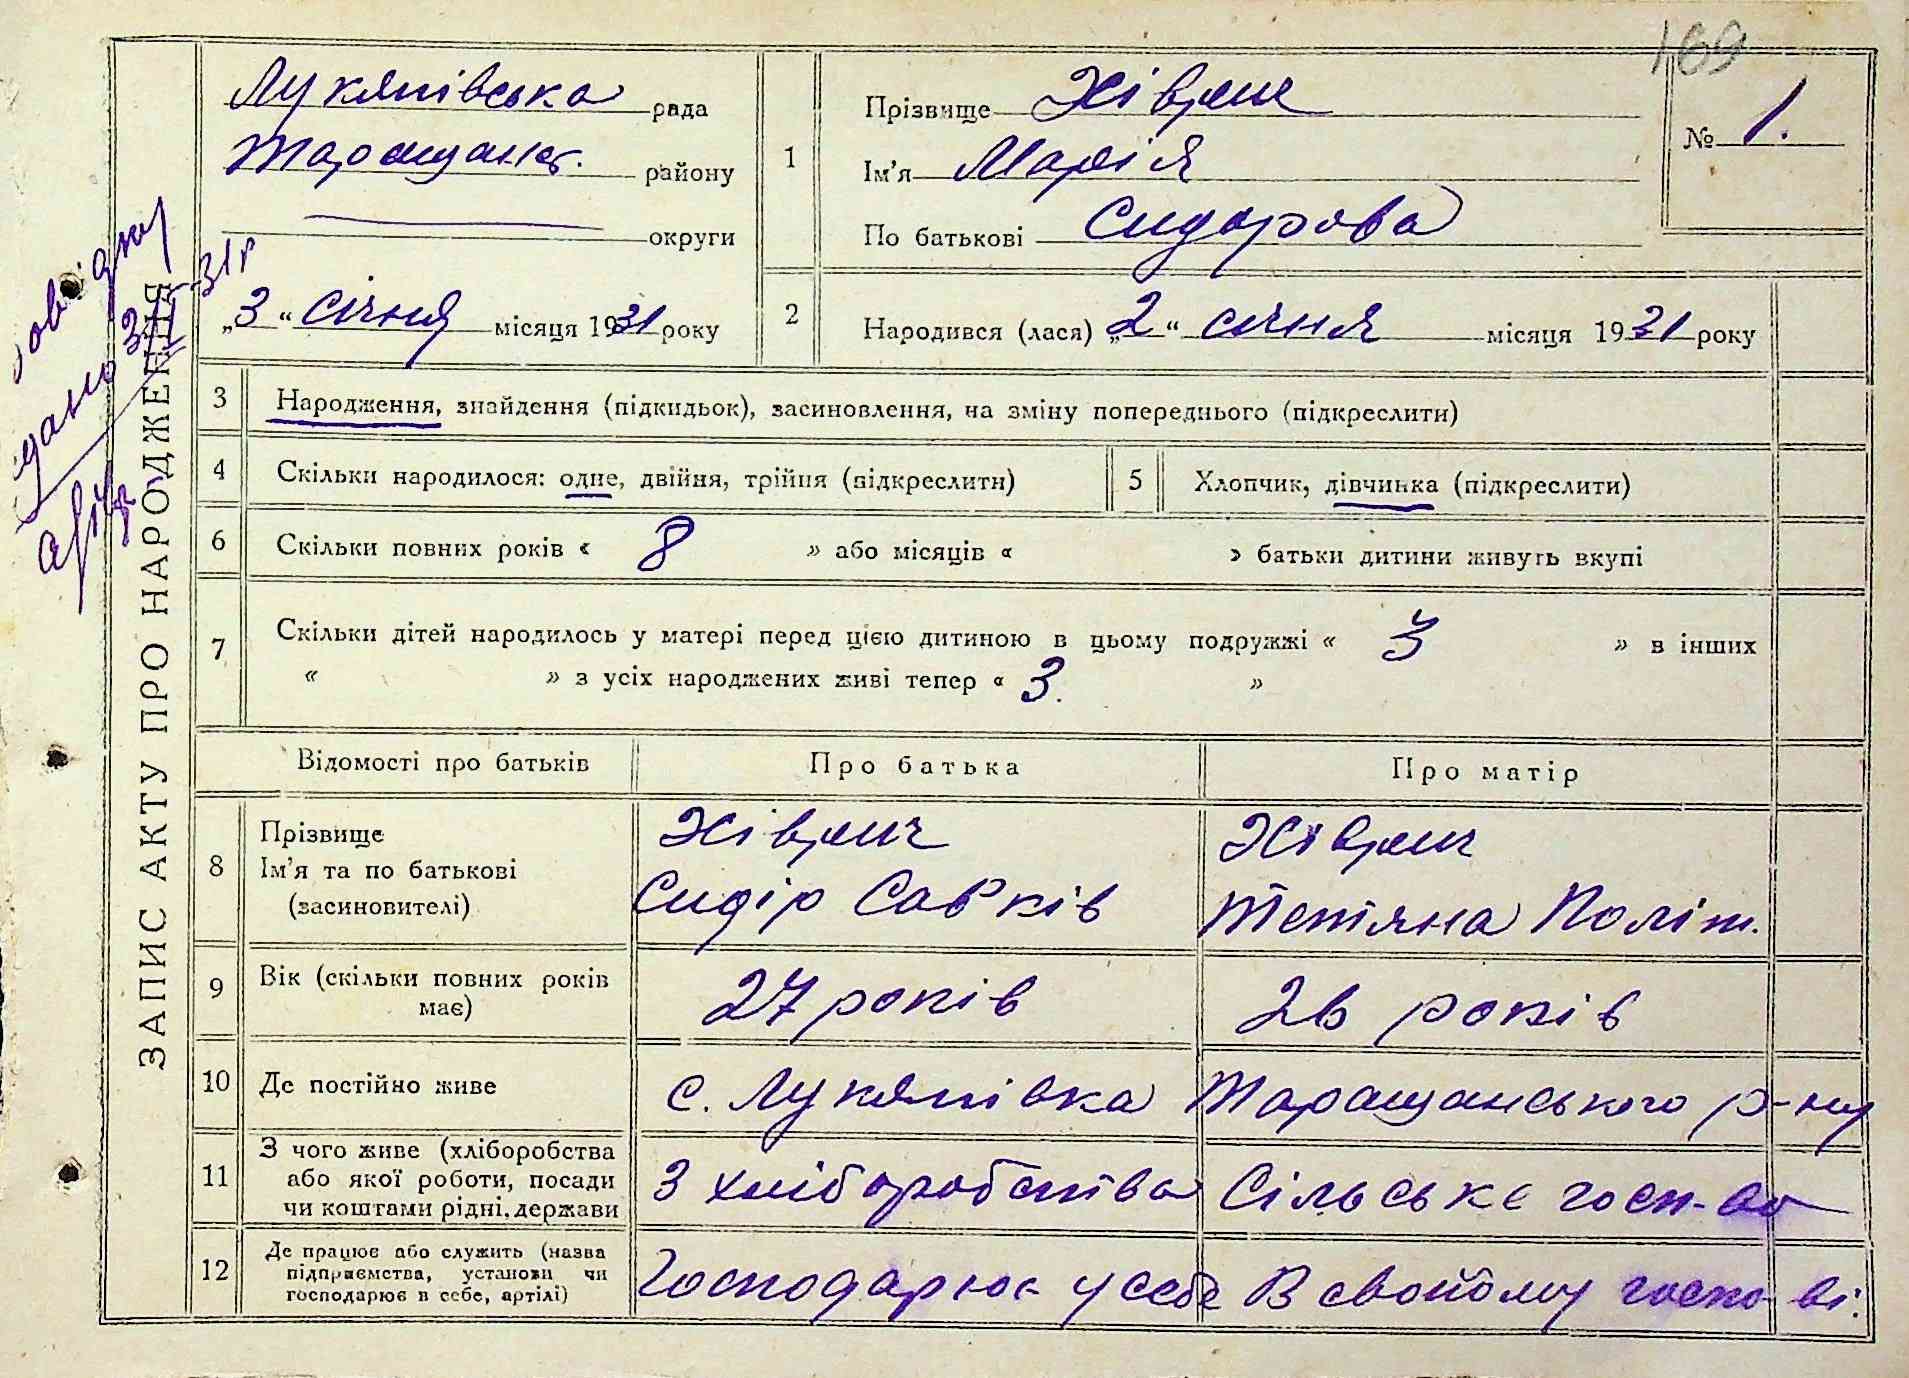 169
ЗАПИС АКТУ ПРО НАРОДЖЕННЯ
Лукянівська рада
Таращанськ. району
округи
„3“ січня місяця 1931 року
1
Прізвище
Ім'я Марія
По батькові Сидорова
№ 1.
2
Народився (лася) „2“ січня місяця 1931 року
3 Народження, знайдення (підкидьок), засиновлення, на зміну попереднього (підкреслити)
4 Скільки народилося: одне, двійня, трійня (підкреслити)
5 Хлопчик, дівчинка (підкреслити)
6 Скільки повних років « 8 » або місяців « » батьки дитини живуть вкупі
7 Скільки дітей народилось у матері перед цією дитиною в цьому подружжі « 3 » в інших
« » з усіх народжених живі тепер « 3. »
Відомості про батьків Про батька Про матір
8 Прізвище
Ім'я та по батькові
(засиновителі)
Сидір Савків
Тетяна Політ.
9 Вік (скільки повних років
має)
27 років
26 років
10 Де постійно живе с. Лукянівка Таращанського р-ну
11 З чого живе (хліборобства
або якої роботи, посади
чи коштами рідні, держави
З хліборобства Сільське госп-во
12 Де працює або служить (назва
підприємства, установи чи
господарює в себе, артілі)
Господарює у себе В свойому госпо-ві.